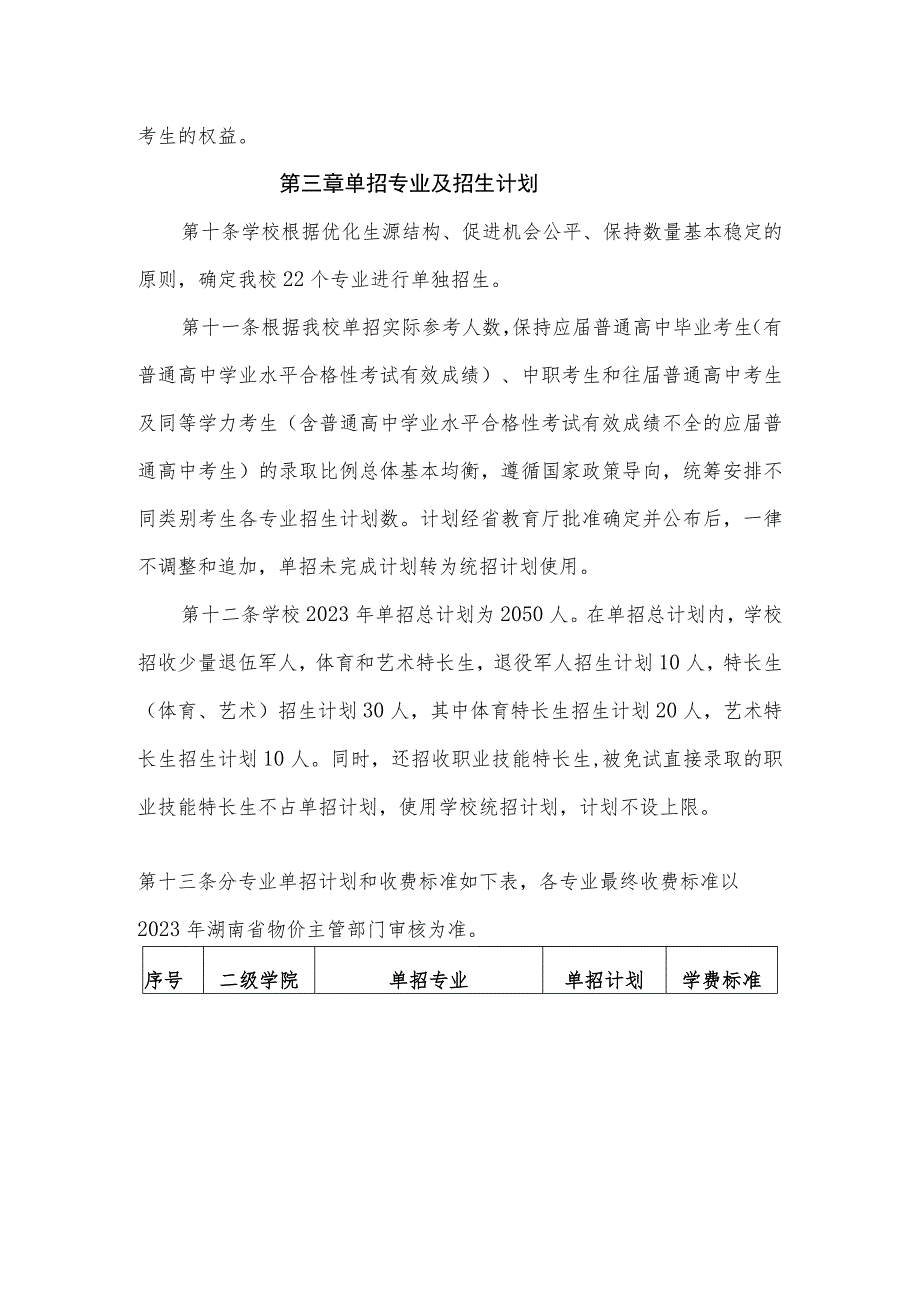 考生的权益。
第三章单招专业及招生计划
第十条学校根据优化生源结构、促进机会公平、保持数量基本稳定的
原则，确定我校 22 个专业进行单独招生。
第十一条根据我校单招实际参考人数,保持应届普通高中毕业考生（有
普通高中学业水平合格性考试有效成绩）、中职考生和往届普通高中考生
及同等学力考生（含普通高中学业水平合格性考试有效成绩不全的应届普
通高中考生）的录取比例总体基本均衡，遵循国家政策导向，统筹安排不
同类别考生各专业招生计划数。计划经省教育厅批准确定并公布后，一律
不调整和追加，单招未完成计划转为统招计划使用。
第十二条学校 2023 年单招总计划为 2050 人。在单招总计划内，学校
招收少量退伍军人，体育和艺术特长生，退役军人招生计划 10 人，特长生
（体育、艺术）招生计划 30 人，其中体育特长生招生计划 20 人，艺术特
长生招生计划 10 人。同时，还招收职业技能特长生,被免试直接录取的职
业技能特长生不占单招计划，使用学校统招计划，计划不设上限。
第十三条分专业单招计划和收费标准如下表，各专业最终收费标准以
2023 年湖南省物价主管部门审核为准。
序号 二级学院 单招专业 单招计划 学费标准